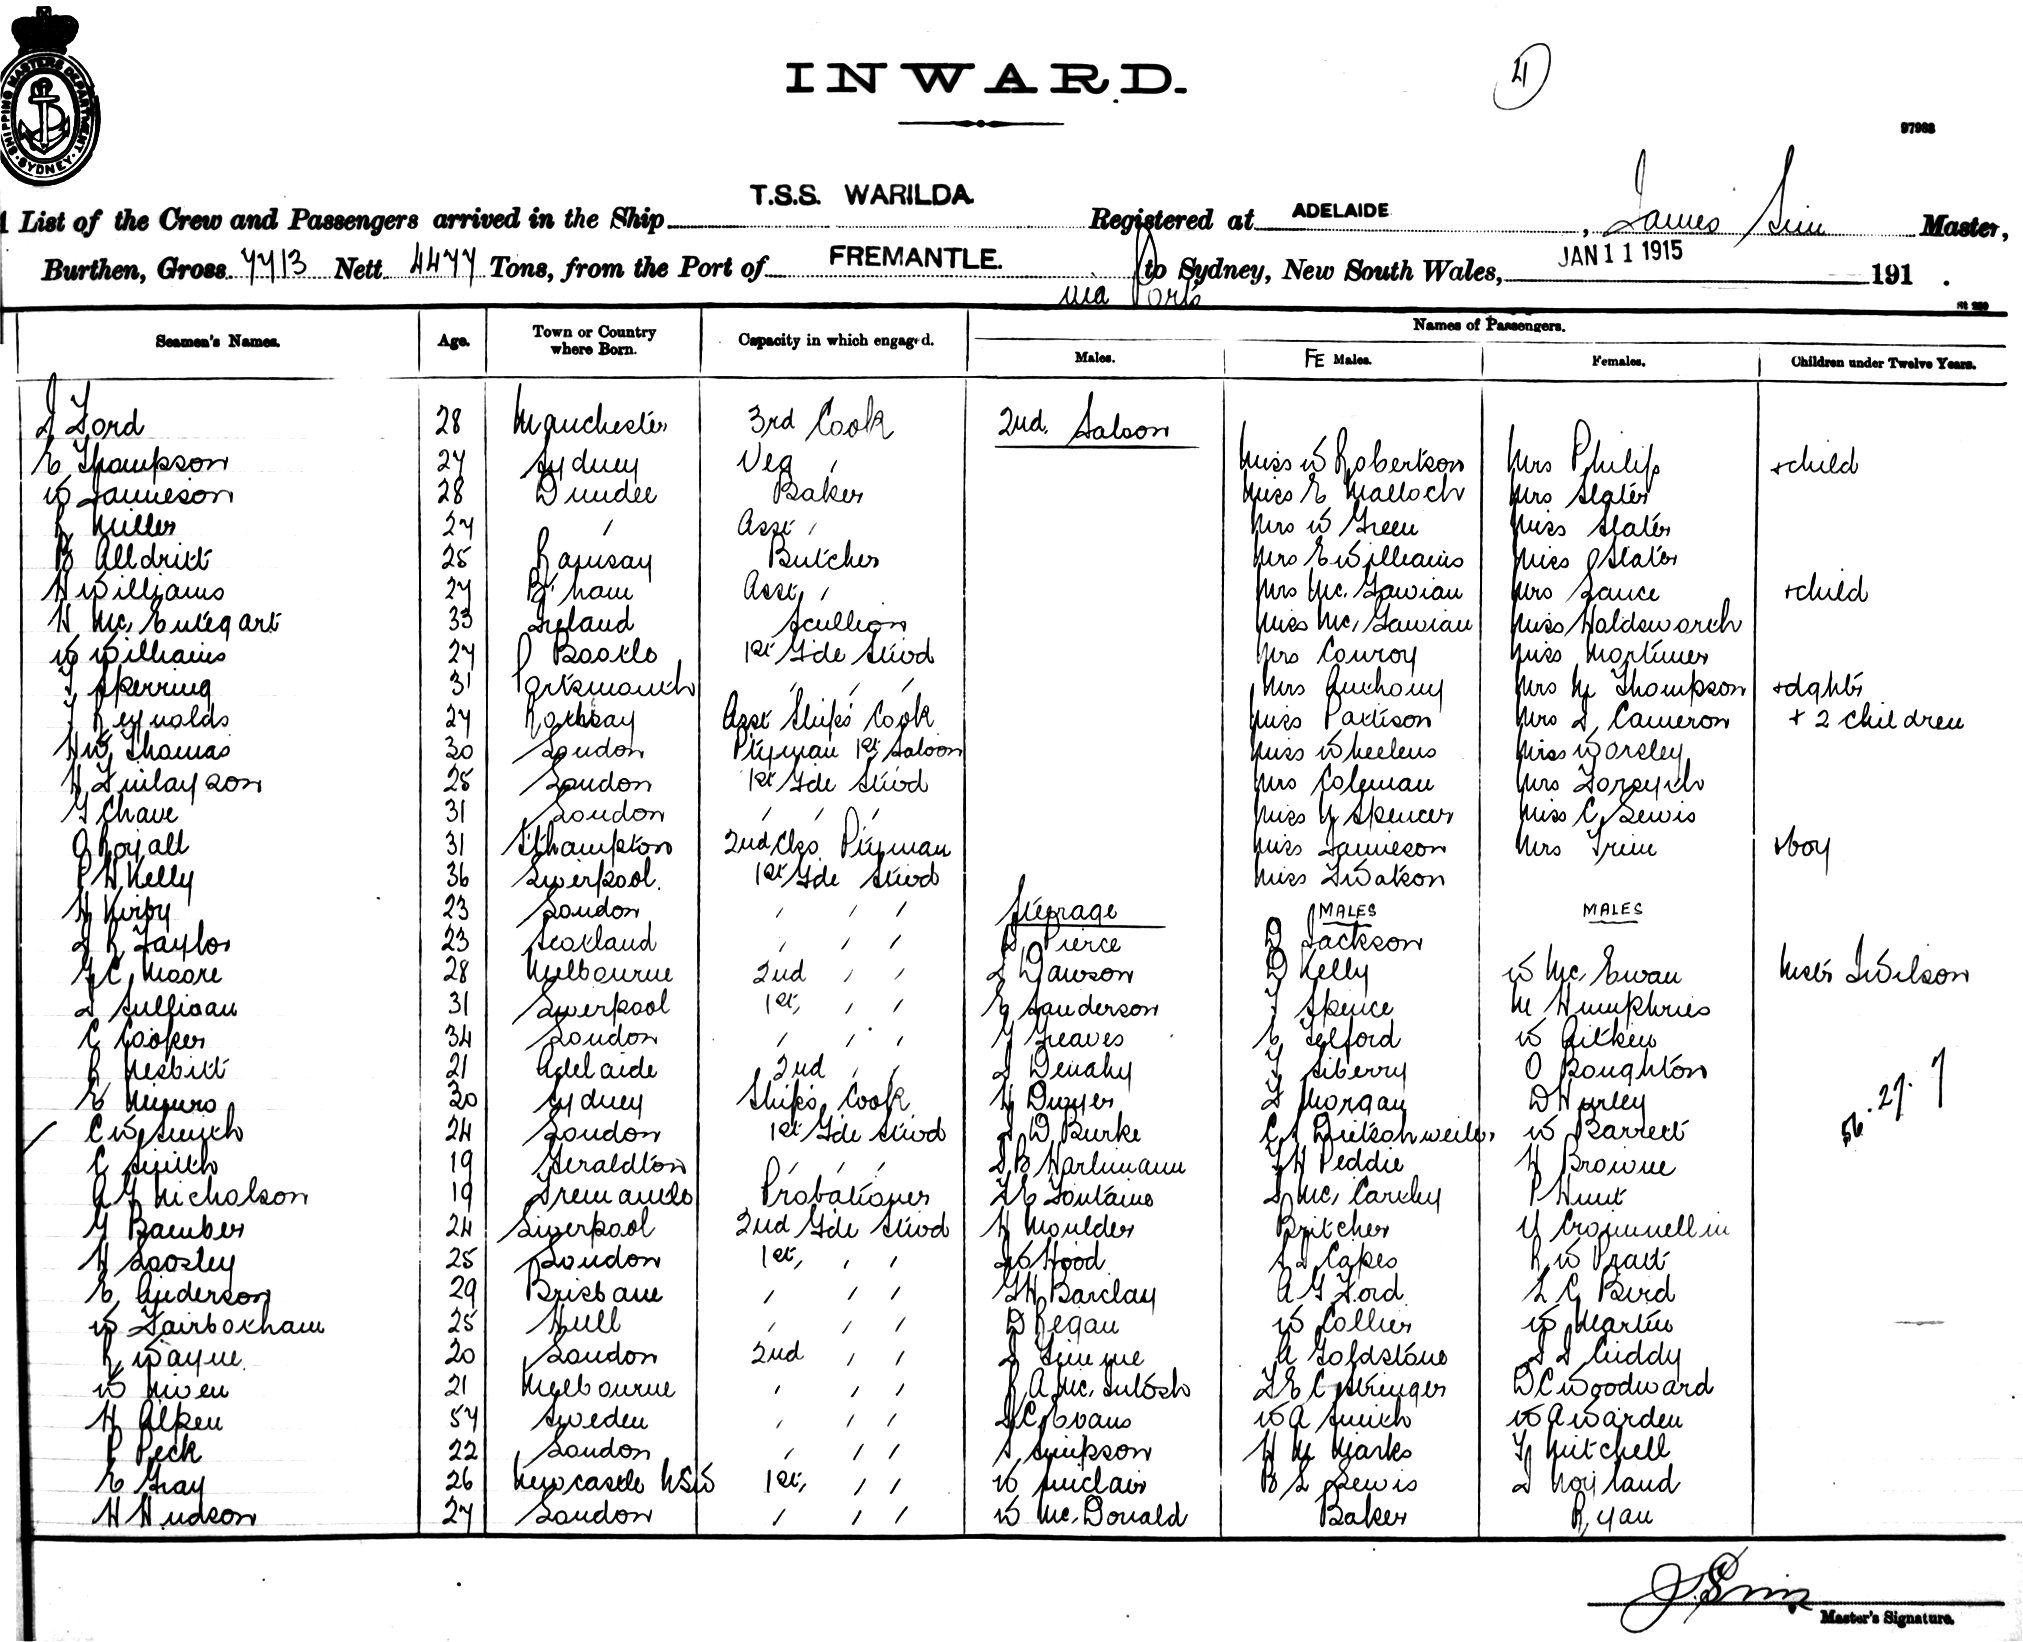 SHIPPING MASTERS DEPARTMENT · SYDNEY ·
INWARD.
21
97963
T.S.S. WARILDA
List of the Crew and Passengers arrived in the Ship Registered at ADELAIDE, James Sim Master,
Burthen, Gross 7713 Nett 4477 Tons, from the Port of FREMANTLE. to Sydney, New South Wales, JAN 11 1915 191 .
via Ports
Seamen's Names. Age. Town or Country where Born. Capacity in which engaged. Names of Passengers.
Males. FE Males. Females. Children under Twelve Years.
J Ford 28 Manchester 3rd Cook 2nd. Saloon
E Thompson 27 Sydney Veg , Miss W Robertson Mrs Philip +child
W Jamieson 28 Dundee Baker Miss E Malloch Mrs Slater
R Miller 27 / Asst / Mrs W Green Miss Slater
B Alldritt 25 Ramsay Butcher Mrs E Williams Miss J Slater
H Williams 27 B'ham Asst / Mrs Mc. Gowian Mrs Lance +child
H Mc. Entegart 33 Ireland Scullion Miss Mc. Gowian Miss Holdsworth
W Williams 27 Bootle 1st Gde Stwd Mrs Conroy Miss Mortimer
T Sperring 31 Portsmouth / / / Mrs Anthony Mrs M Thompson +dghtr
T Reynolds 27 Rothsay Asst Ships Cook Miss Pattison Mrs D Cameron + 2 children
H W Thomas 30 London Ptyman 1st Saloon Miss Wheelens Miss Worsley
H Finlayson 25 London 1st Gde Stwd Mrs Coleman Mrs Forsyth
G Chave 31 London / / / Miss M Spencer Miss C Lewis
A Royall 31 S'thampton 2nd Clss Ptyman Miss Jamieson Mrs Trim +boy
P H Kelly 36 Liverpool. 1st Gde Stwd Miss F Watson
H Kirby 23 London / / / Steerage MALES MALES
J R Taylor 23 Scotland / / / S Pierce D Jackson
G C Moore 28 Melbourne 2nd / / J Dawson D Kelly W Mc. Ewan Mstr J Wilson
J Sullivan 31 Liverpool 1st, / / E Sanderson T Spence M Humphries
C Cooper 34 London / / / G Greaves E Telford W Aitken
R Nesbitt 21 Adelaide 2nd / / J Denahy T Siberry O Boughton
E Munro 30 Sydney Ships Cook H Dwyer J Morgan D Hurley
C W Smith 24 London 1st Gde Stwd J D Burke W Barrett 56. 27. 7
C Smith 19 Geraldton / / / J B Hartmann T H Peddie H Browne
A G Nicholson 19 Fremantle Probationer F E Fontaine J Mc. Carthy P Hunt
G Bamber 24 Liverpool 2nd Gde Stwd H Moulder Britcher
H Loosley 25 London 1st, / / J W Hood S J Capes R W Pratt
E Anderson 29 Brisbane / / / G H Barclay A G Ford L C Bird
W Fairbotham 25 Hull / / / D Regan W Collier W Martin
R Wayne 20 London 2nd / / A Goldstone J J Cuddy
W Niven 21 Melbourne / / / R A Mc. Intosh F E C Stringer D C Woodward
H Alken 57 Sweden / / / J C Evans W A Smith W A Warden
P Peck 22 London / / / S Simpson H M Marks G Mitchell
E Gray 26 Newcastle NSW 1st, / / W Sinclair B L Lewis J Hoyland
H Hudson 27 London / / / W Mc. Donald Baker Ryan
J. Sim
Master's Signature.